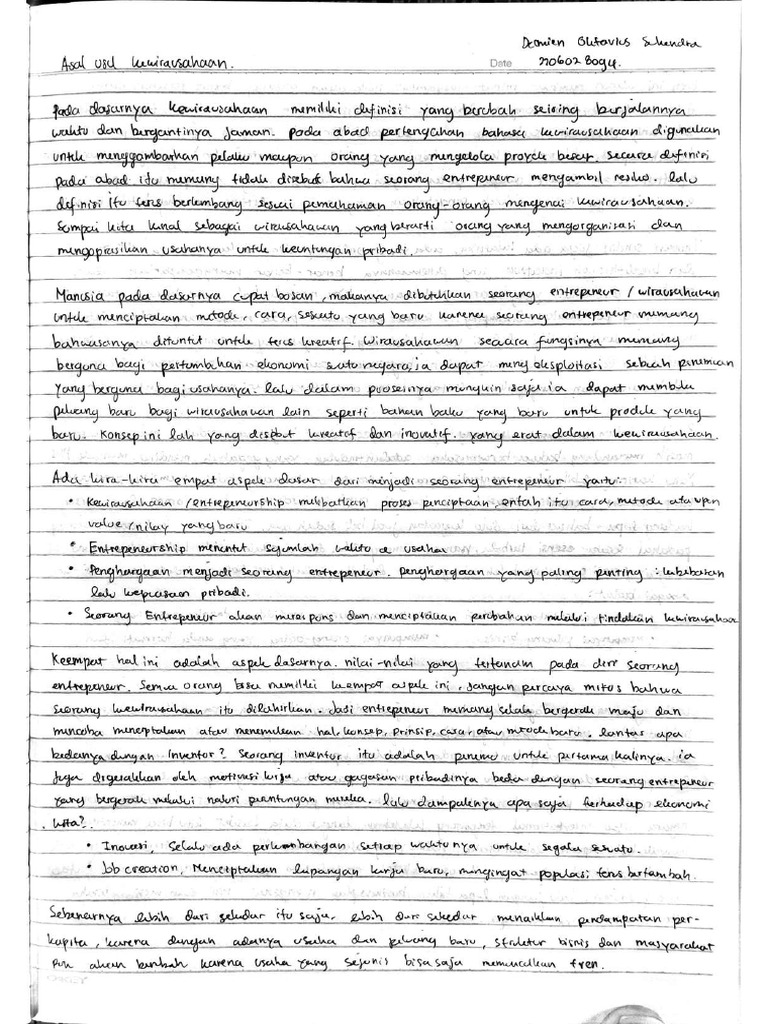 Damien Oktavius Suhendra
Asal usul kewirausahaan.
Date
Pada dasarnya kewirausahaan memiliki definisi yang berubah seiring berjalannya
waktu dan bergantinya jaman. pada abad pertengahan bahasa kewirausahaan digunakan
untuk menggambarkan pelaku maupun orang yang mengelola proyek besar. secara definisi
pada abad itu memang tidak disebut bahwa seorang entrepeneur mengambil resiko. lalu
definisi itu terus berkembang sesuai pemahaman orang-orang mengenai kewirausahaan.
Sampai kita kenal sebagai wirausahawan yang berarti orang yang mengorganisasi dan
mengoprasikan usahanya untuk keuntungan pribadi.
Manusia pada dasarnya cepat bosan, makanya dibutuhkan seorang entrepeneur / wirausahawan
untuk menciptakan metode, cara, sesuatu yang baru karena seorang entrepeneur memang
bahwasanya dituntut untuk terus kreatif. wirausahawan secara fungsinya memang
berguna bagi pertumbuhan ekonomi suatu negara, ia dapat mengeksploitasi sebuah penemuan
yang berguna bagi usahanya. lalu dalam prosesnya mungkin saja ia dapat membuka
peluang baru bagi wirausahawan lain seperti bahan baku yang baru untuk produk yang
baru. Konsep ini lah yang disebut kreatif dan inovatif. yang erat dalam kewirausahaan.
Ada kira-kira empat aspek dasar dari menjadi seorang entrepeneur yaitu:
• Kewirausahaan / entrepeneurship melibatkan proses penciptaan, entah itu cara, metode ataupun
value / nilai yang baru
• Entrepeneurship menuntut sejumlah waktu & usaha
• Penghargaan menjadi seorang entrepeneur. penghargaan yang paling penting : kebebasan
lalu kepuasan pribadi.
• Seorang Entrepeneur akan merespons dan menciptakan perubahan melalui tindakan kewirausahaan
Keempat hal ini adalah aspek dasarnya. nilai-nilai yang tertanam pada diri seorang
entrepeneur. Semua orang bisa memiliki keempat aspek ini, jangan percaya mitos bahwa
seorang kewirausahaan itu dilahirkan. Jadi entrepeneur memang selalu bergerak maju dan
mencoba menciptakan atau menemukan hal, konsep, prinsip, cara, atau metode baru. lantas apa
bedanya dengan inventor? Seorang inventor itu adalah penemu untuk pertama kalinya. ia
juga digerakkan oleh motivasi kerja atau gagasan pribadinya beda dengan seorang entrepeneur
yang bergerak melalui naluri peruntungan mereka. lalu dampaknya apa saja terhadap ekonomi
kita?
• Inovasi, Selalu ada perkembangan setiap waktunya untuk segala sesuatu.
• Job creation, Menciptakan lapangan kerja baru, mengingat populasi terus bertambah.
Sebenarnya lebih dari sekedar itu saja, lebih dari sekedar menaikkan pendapatan per-
kapita, karena dengan adanya usaha dan peluang baru, struktur bisnis dan masyarakat
pun akan berubah karena usaha yang sejenis bisa saja memunculkan tren.